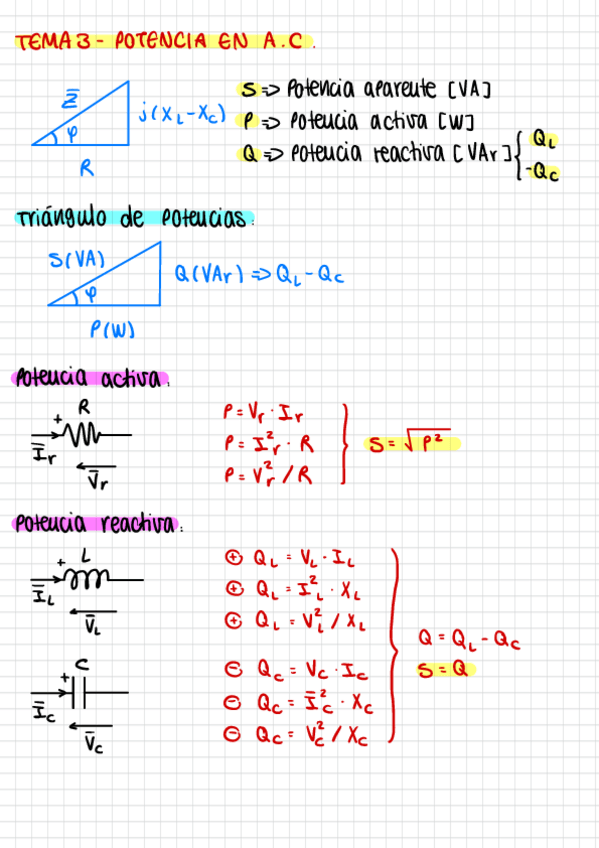 TEMA 3 - POTENCIA EN A.C.
Z̅
φ
R
j(XL-XC)
S => Potencia aparente [VA]
P => Potencia activa [W]
Q => Potencia reactiva [VAr] { QL
-QC
Triángulo de potencias:
S(VA)
φ
P(W)
Q(VAr) => QL - QC
Potencia activa:
+ R
I̅r
V̅r
P = Vr · Ir
P = Ir² · R
P = Vr² / R
S = √P²
Potencia reactiva:
+ L
I̅L
V̅L
⊕ QL = VL · IL
⊕ QL = IL² · XL
⊕ QL = VL² / XL
+ C
I̅C
V̅C
⊖ QC = VC · IC
⊖ QC = I̅C² · XC
⊖ QC = VC² / XC
Q = QL - QC
S = Q